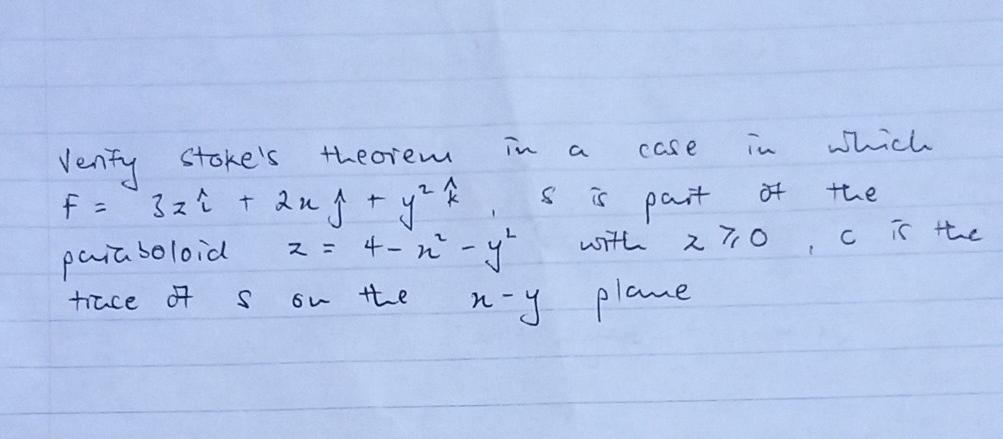 Verify Stoke's theorem in a case in which
F = 3zî + 2xĵ + y²k̂, S is part of the
paraboloid z = 4-x²-y² with z ≥ 0, C is the
trace of S on the x-y plane